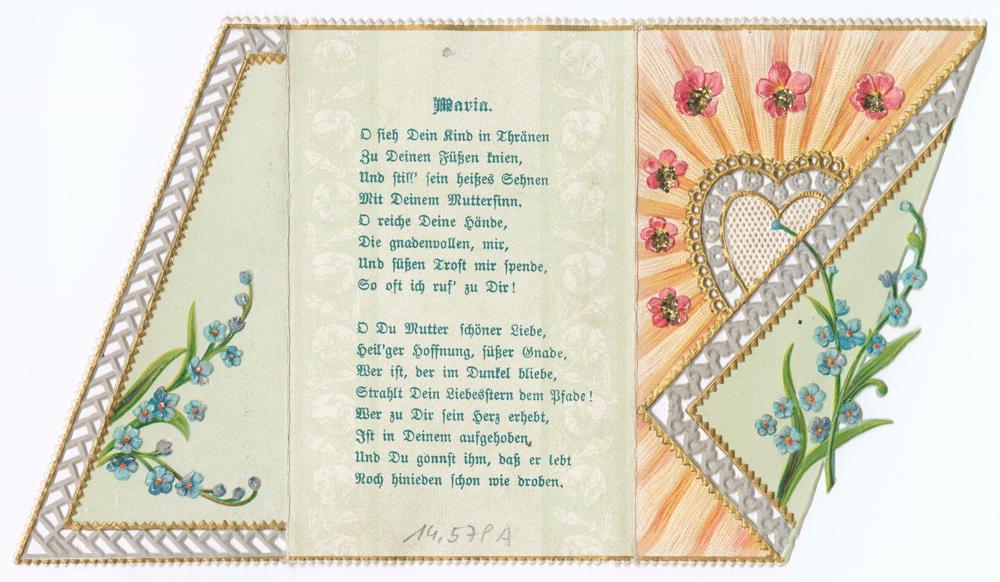 Maria.
O sieh Dein Kind in Thränen
Zu Deinen Füßen knien,
Und still' sein heißes Sehnen
Mit Deinem Muttersinn.
O reiche Deine Hände,
Die gnadenvollen, mir,
Und süßen Trost mir spende,
So oft ich ruf' zu Dir!
O Du Mutter schöner Liebe,
Heil'ger Hoffnung, süßer Gnade,
Wer ist, der im Dunkel bliebe,
Strahlt Dein Liebesstern dem Pfade!
Wer zu Dir sein Herz erhebt,
Ist in Deinem aufgehoben,
Und Du gonnst ihm, daß er lebt
Noch hinieden schon wie droben.
14,578 A